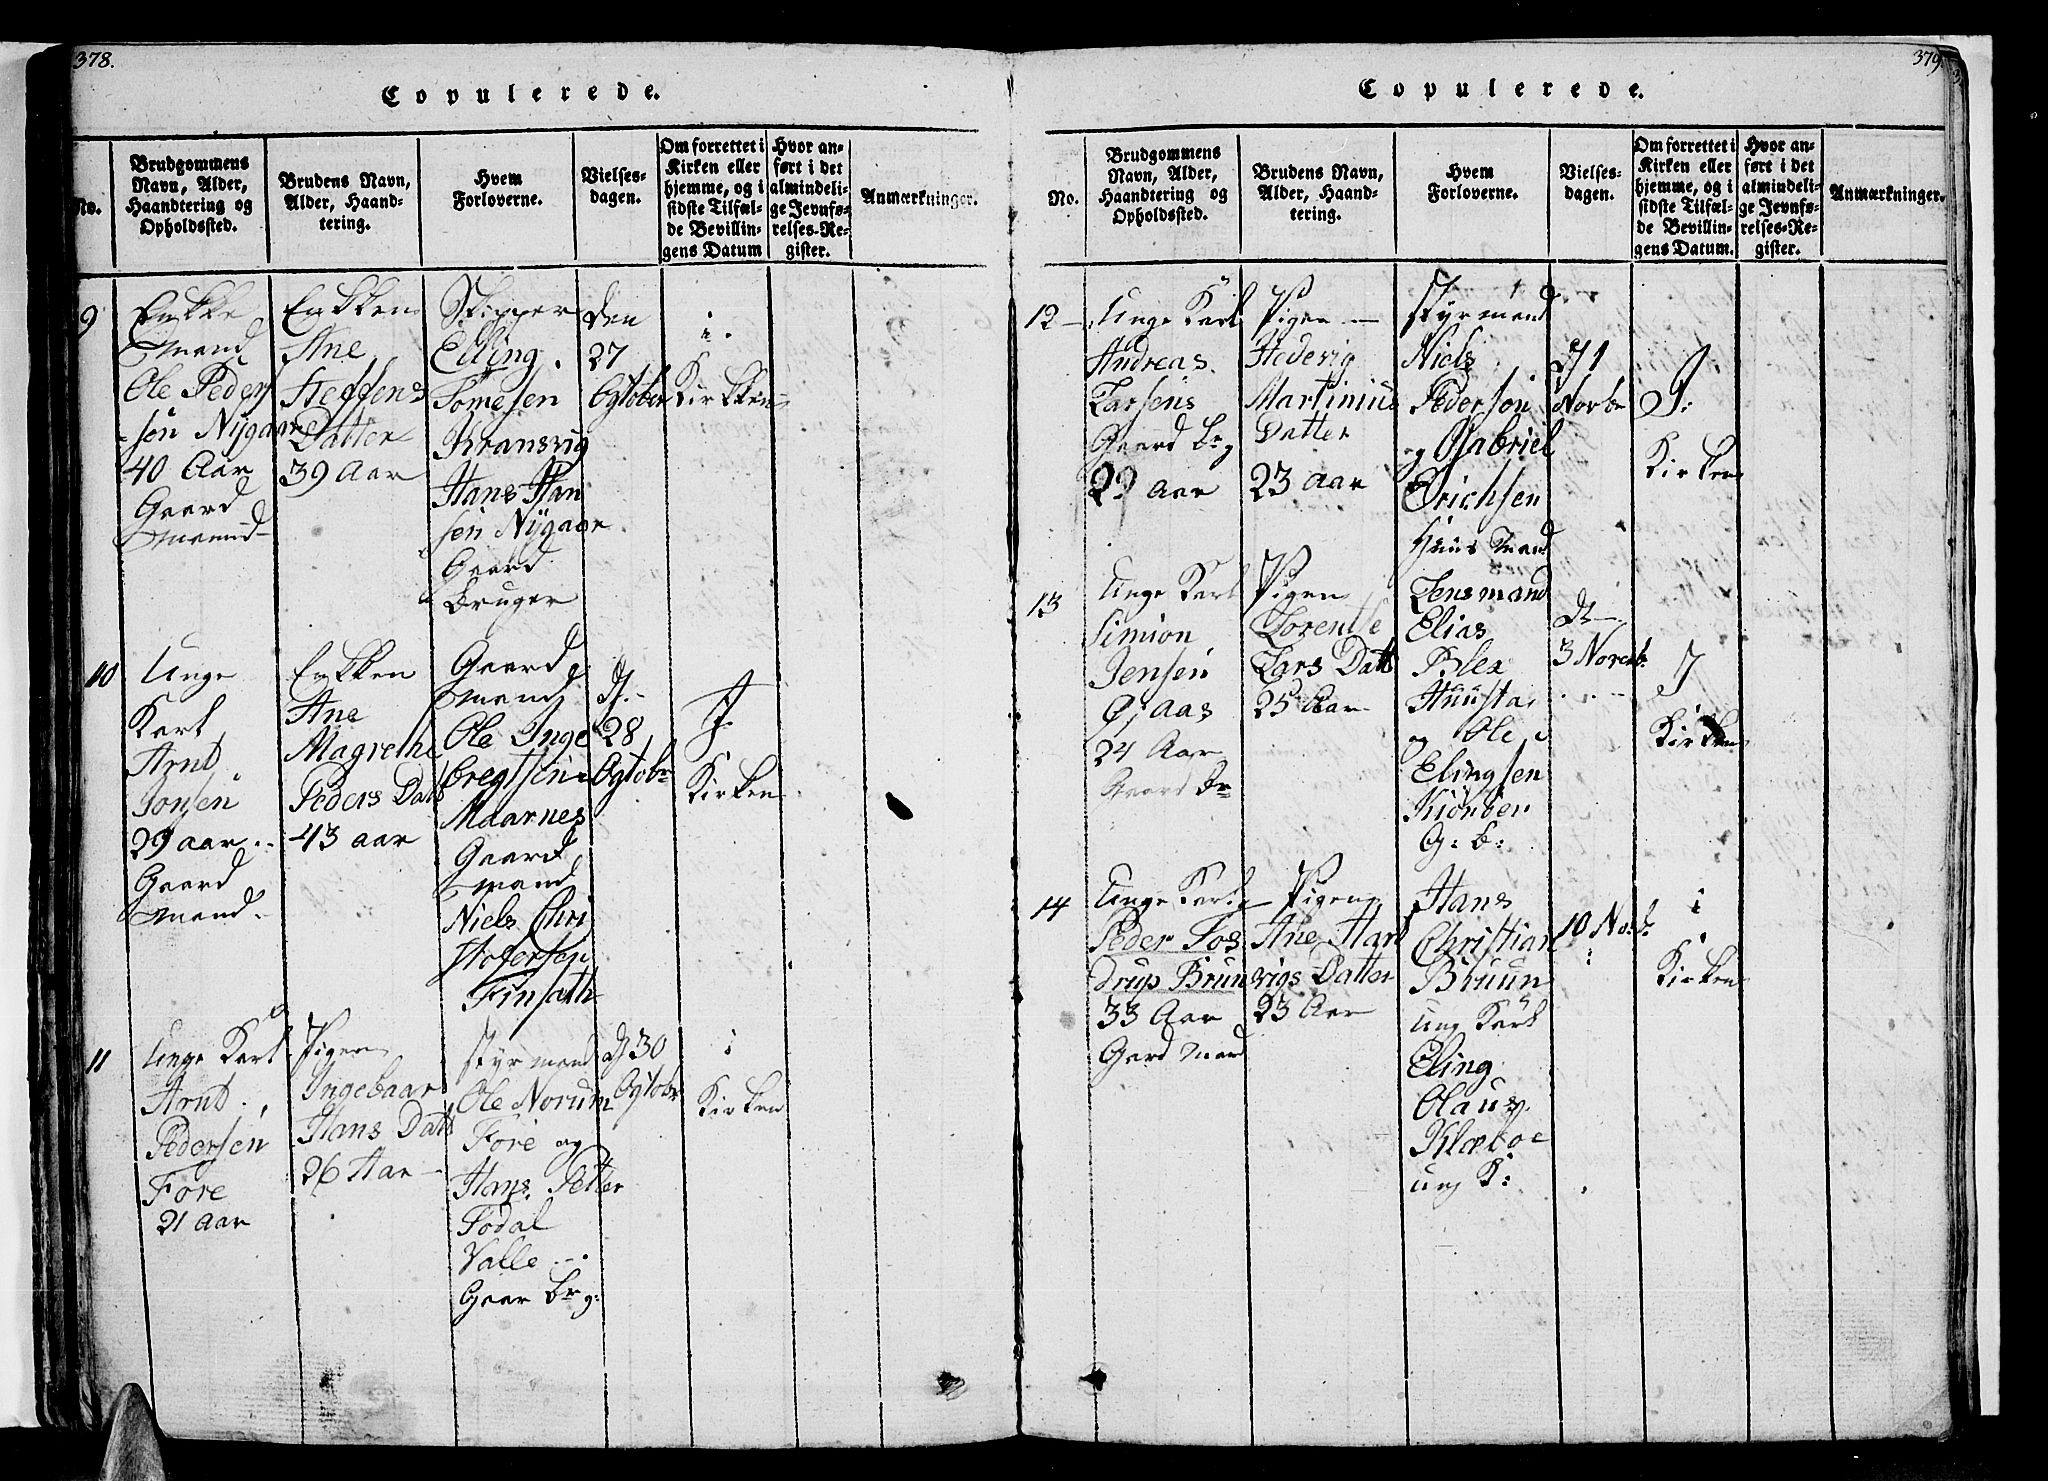 378.
Copulerede.
No.
Brudgommens
Navn, Alder,
Haandtering og
Opholdssted.
Brudens Navn,
Alder, Haand-
tering.
Hvem
Forloverne.
Vielses-
dagen.
Om forrettet i
Kirken eller
hjemme, og i
sidste Tilfæl-
de Bevillin-
gens Datum
Hvor an-
ført i det
almindeli-
ge Jevnfø-
relses-Re-
gister.
Anmærkninger.
9
Enkke
Mand
Ole Peder
sön Nÿgaard
40 Aar
Gaard
mand
Enkken
Ane
Steffens
Datter
39 Aar
Skipper
Elling
Tomesen
Kransvig
Hans Han
sen Nÿgaar
Gaard
Bruger
den
27
Ogtober
i
Kirkken
10
Unge
Karl
Arnt
Jonsen
29 aar
Gaard
mand
Enkken
Ane
Magrethe
Peders Datt
43 aar
Gaard
mand
Ole Inge
bregtsen
Maarnes
Gaard
mand
Niels Chri
stofersen
Finsæth
d.
28
Ogtobr
J
Kirken
11
Unge Karl
Arnt
Pedersen
Fore
21 Aar
Pigen
Ingebaar
Hans Datt
26 Aar
Styrmand
Ole Norum
Fore og
Hans Petter
Fodal
Valle
Gaar Brg:
d 30
Ogtobr
i
Kirken
379.
Copulerede.
No.
Brudgommens
Navn, Alder,
Haandtering og
Opholdssted.
Brudens Navn,
Alder, Haand-
tering.
Hvem
Forloverne.
Vielses-
dagen.
Om forrettet i
Kirken eller
hjemme, og i
sidste Tilfæl-
de Bevillin-
gens Datum.
Hvor an-
ført i det
almindeli-
ge Jevnfø-
relses-Re-
gister.
Anmærkninger.
12
Unge Karl
Andreas
Larsens
Gaard brg
29 Aar
Pigen
Hedevig
Martinius
Datter
23 Aar
Styrmand
Niels
Pedersön
og Gabriel
Erichsen
Huus Mand
d 1
Novbr
J:
Kirken
13
Unge Karl
Simion
Jensen
Øjaas
24 Aar
Gaard Br
Pigen
Lorentse
Lars Datt
25 Aar
Lensmand
Elias
Blex
Huusta
og Ole
Elingsen
Kiönber
G: b:
d
3 Novenb:
J
Kirken
14
Unge Karl
Peder Sos
Drup Brun
33 Aar
Gard Mand
Pigen
Ane Hart
vigs Datter
23 Aar
Hans
Christian
Bruun
ung Karl
Eling
Olaus
Klæboe
ung K:
10 Nov
i
Kirken